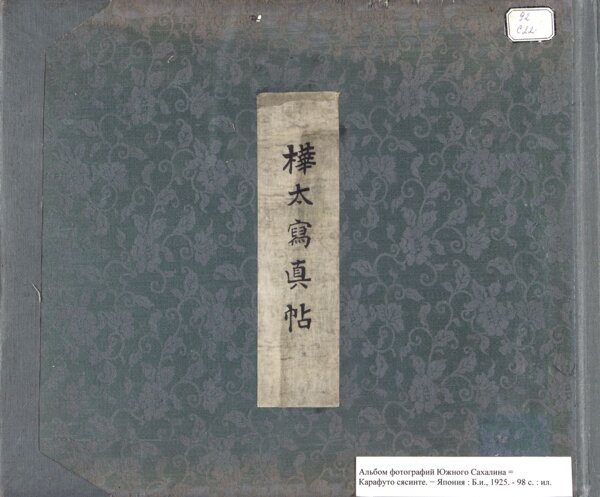 92
С22
樺太寫真帖
Альбом фотографий Южного Сахалина =
Карафуто сясинте. − Япония : Б.и., 1925. - 98 с. : ил.